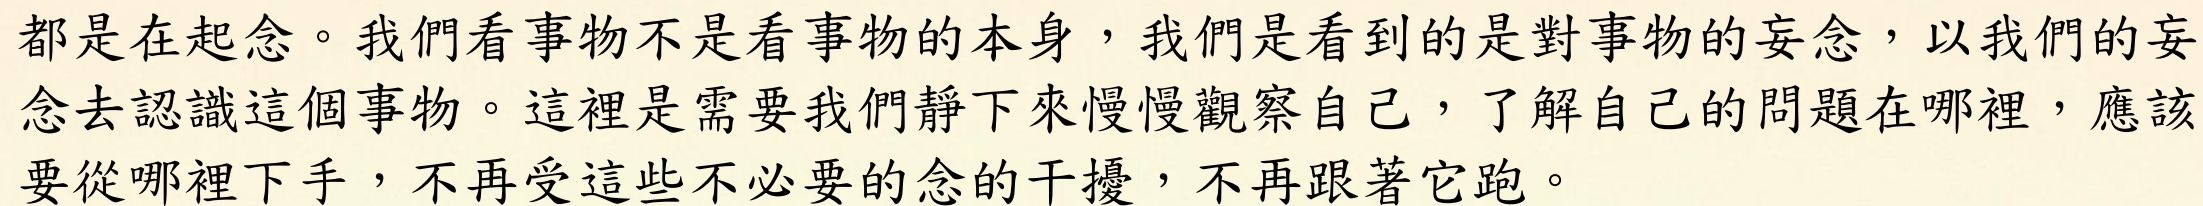 都是在起念。我們看事物不是看事物的本身，我們是看到的是對事物的妄念，以我們的妄
念去認識這個事物。這裡是需要我們靜下來慢慢觀察自己，了解自己的問題在哪裡，應該
要從哪裡下手，不再受這些不必要的念的干擾，不再跟著它跑。